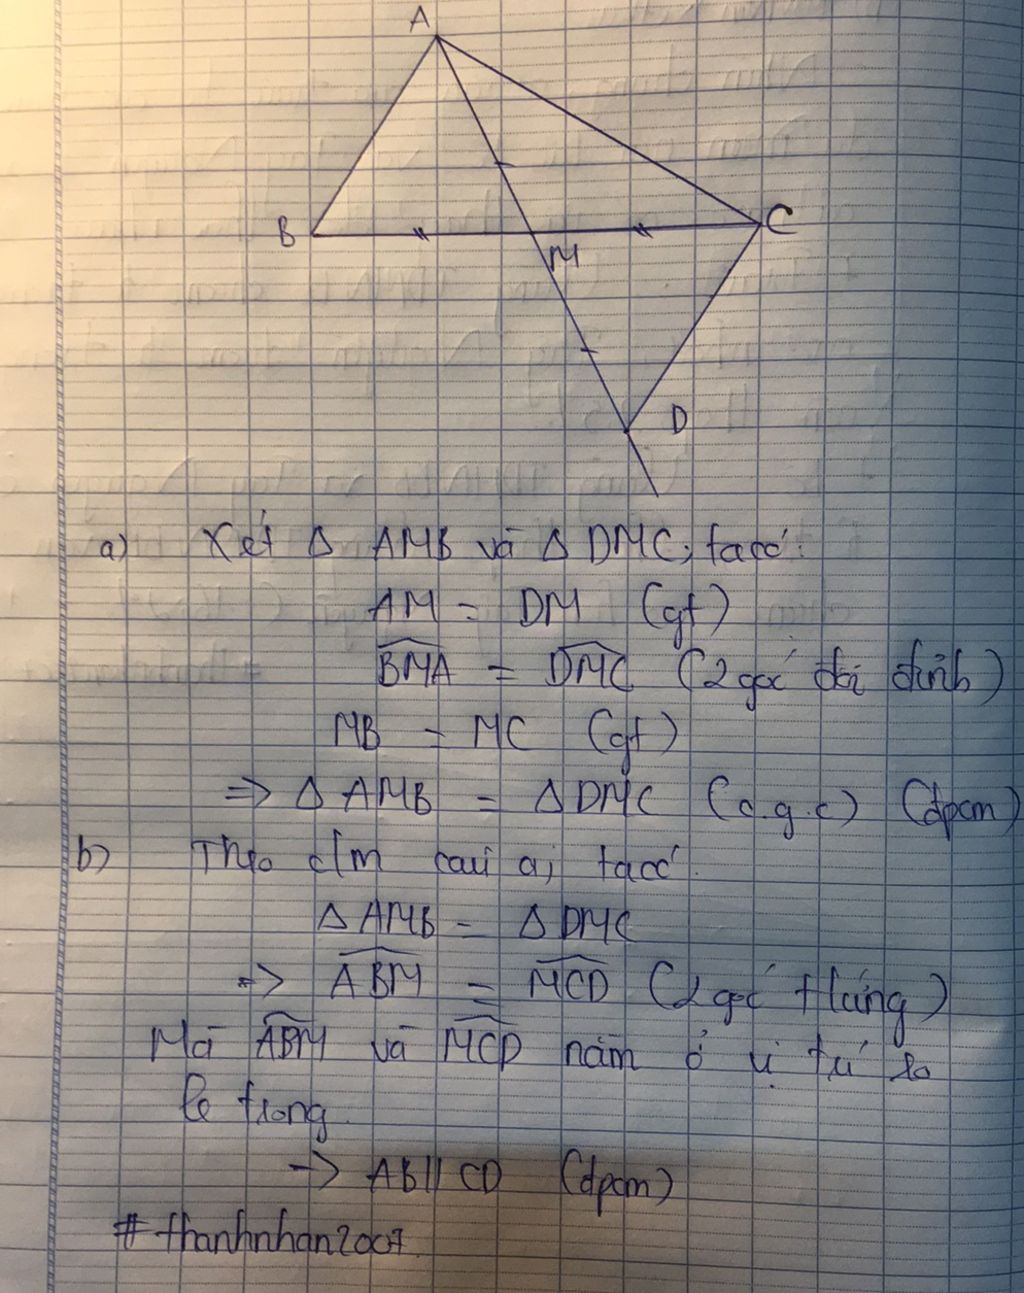 A
B
C
M
D
a) Xét Δ AMB và Δ DMC, ta có:
AM = DM (gt)
BMA = DMC (2 góc đối đỉnh)
MB = MC (gt)
=> Δ AMB = Δ DMC (c.g.c) (đpcm)
b) Theo c/m câu a, ta có:
Δ AMB = Δ DMC
=> ABM = MCD (2 góc t/ứng)
Mà ABM và MCD nằm ở vị trí so
le trong
-> AB // CD (đpcm)
# thanhnhan2007.